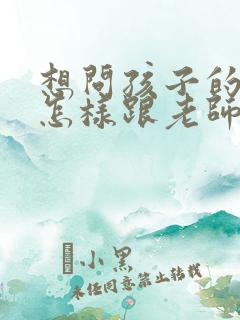 想問孩子的
怎樣跟老師
小黑
未经同意禁止转载